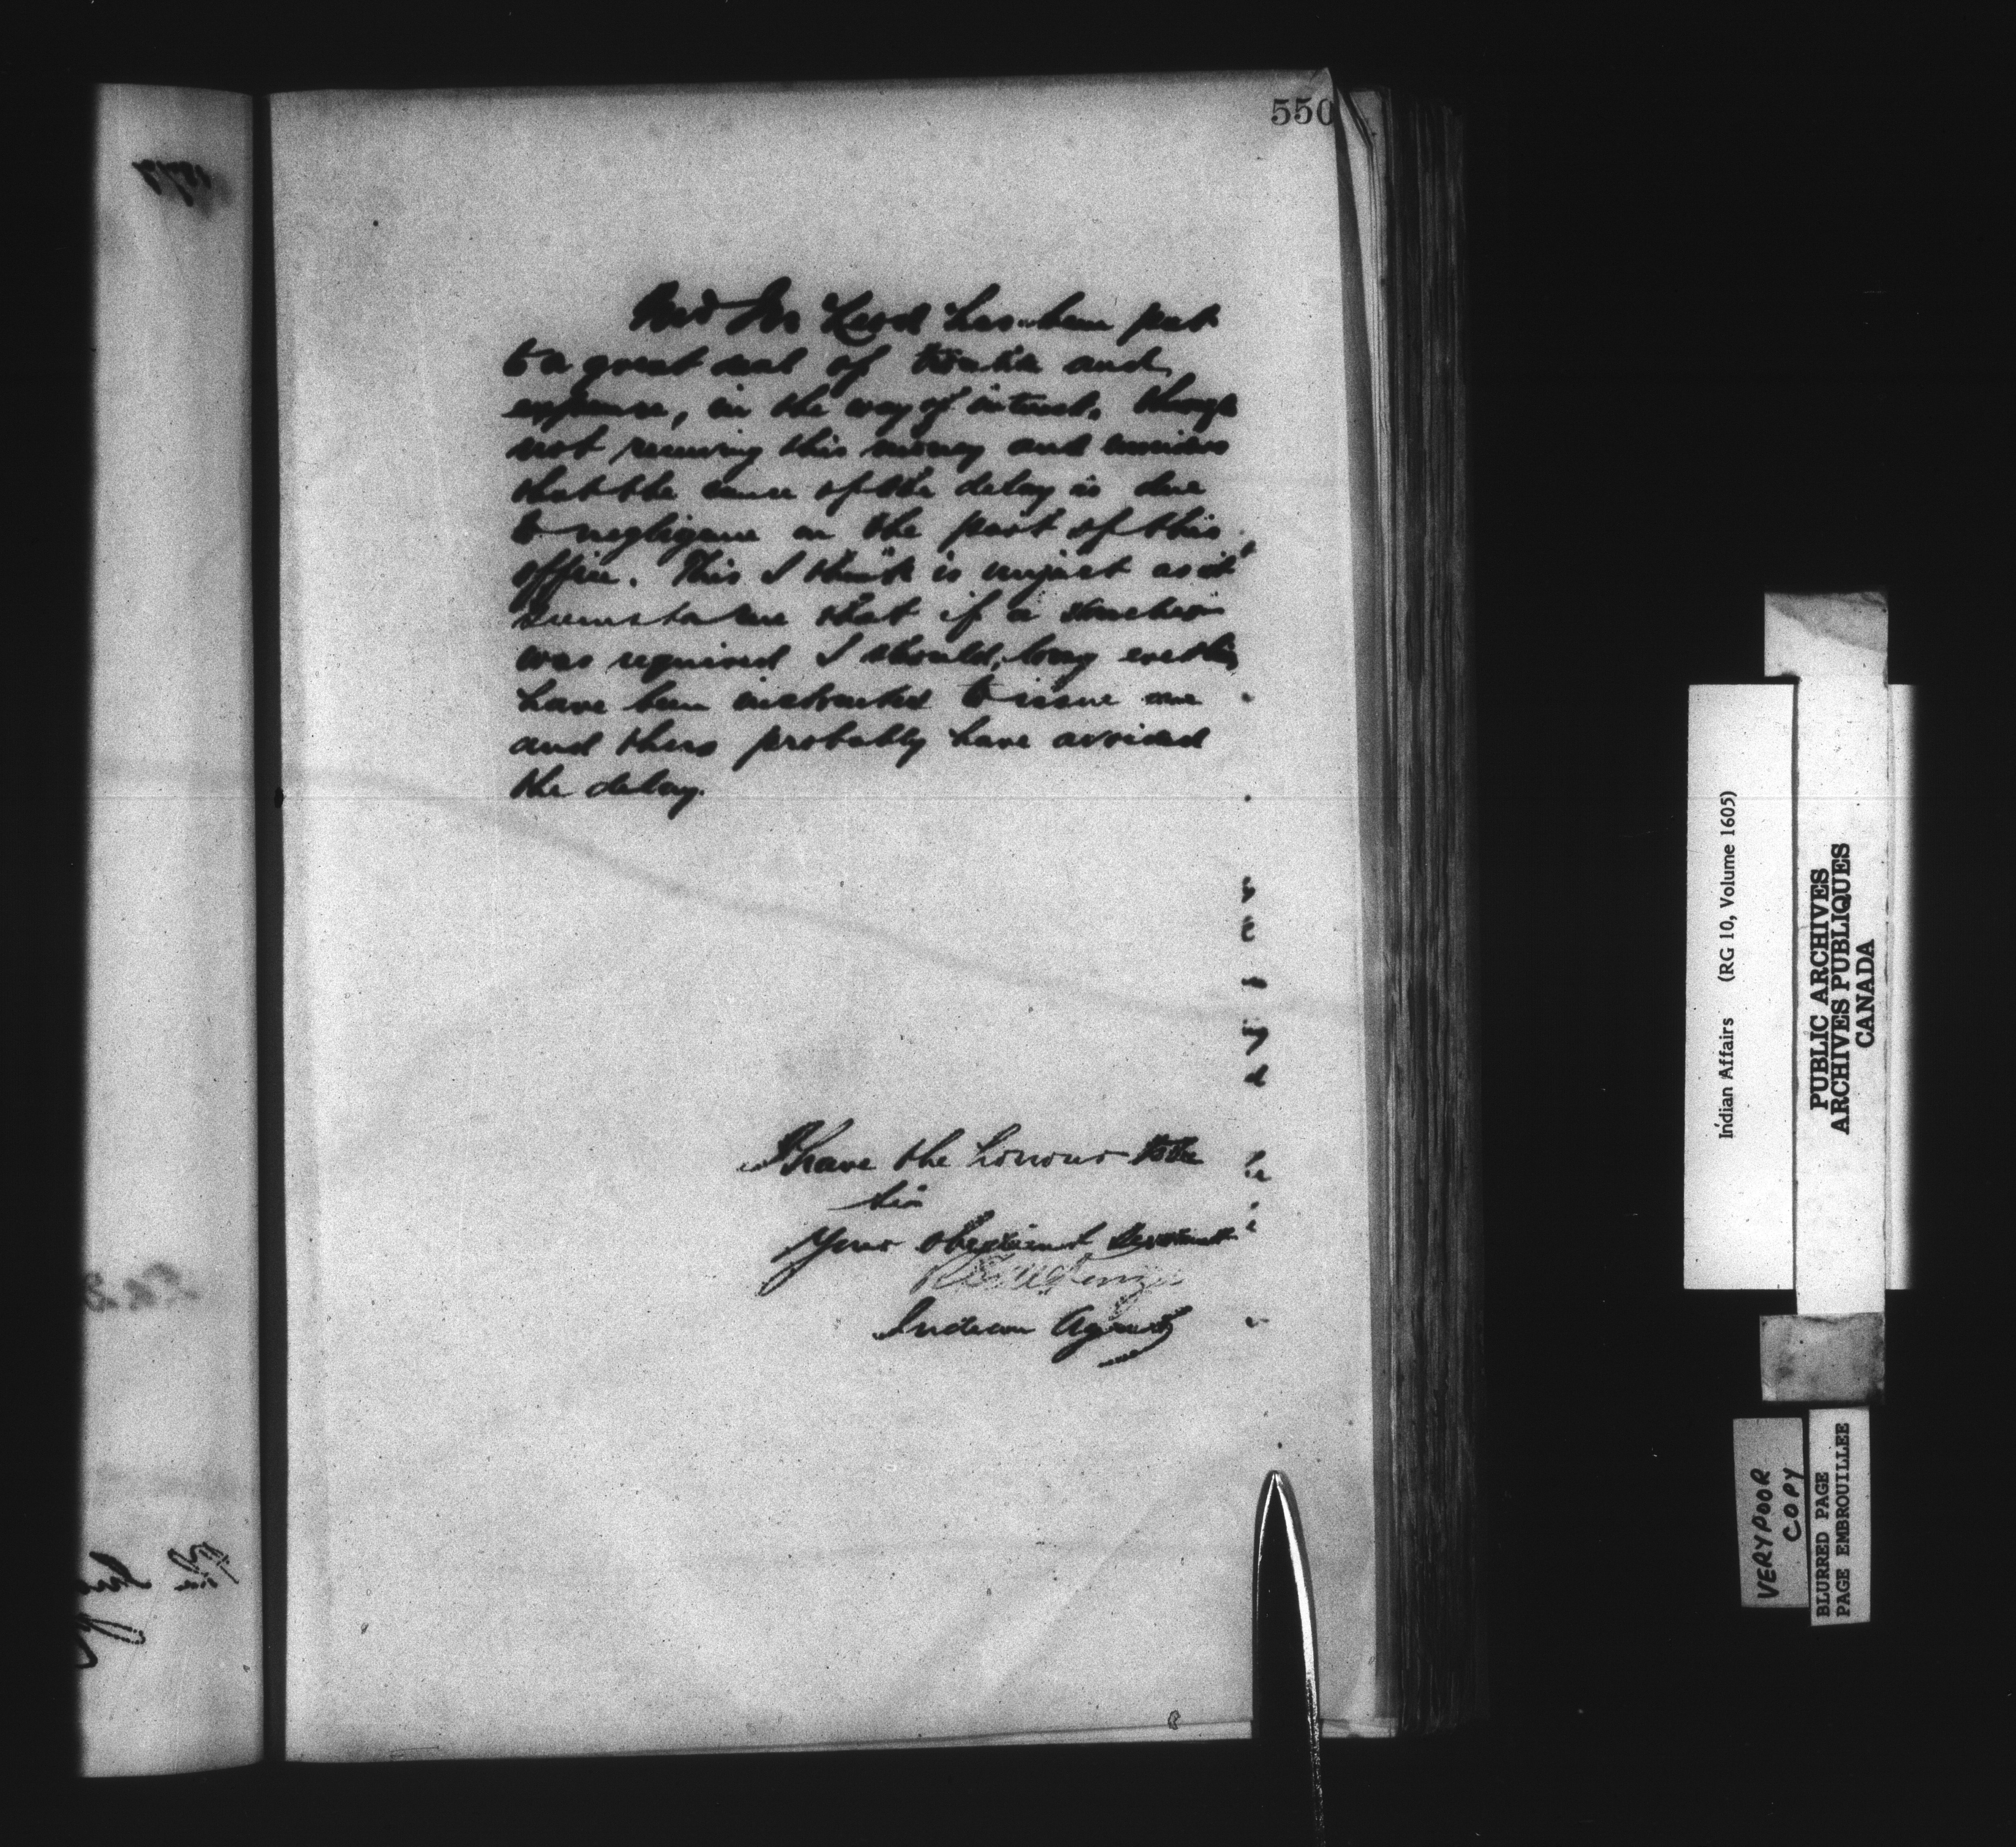 550
Rev Mr Leod has been put
to a great deal of trouble and
expense, in the way of interest, through
not receiving this money and considers
that the cause of the delay is due
to negligence on the part of this
office. This I think is unjust as it
seems to me that if a voucher
was required I should, long ere this
have been instructed to issue one
and thus probably have avoided
the delay.
I have the honour to be
Sir
Your obedient Servant
Indian Agent
Indian Affairs (RG 10, Volume 1605)
PUBLIC ARCHIVES
ARCHIVES PUBLIQUES
CANADA
VERY POOR
COPY
BLURRED PAGE
PAGE EMBROUILLEE